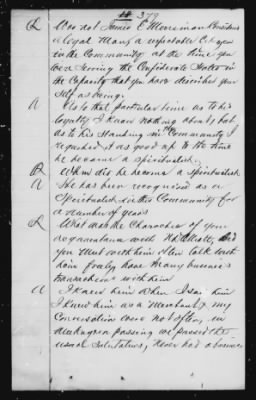 379
Q Was not James E Merriman Considered
a loyal Man, a reputable Citizen
in the Community at the time you
were Serving the Confederate States in
the Capacity that you have described your
Self as being.
A As to that particular time as to his
loyalty I know nothing about, but
as to his Standing in the Community I
regarded it as good up to the time
he became a Spiritualist.
Q When did he become a Spiritualist
A He has been recognised as a
Spiritualist in this Community for
a number of years
Q What was the Character of your
acquaintance with did
you meet with him often talk with
him freely have many business
transactions with him
A I knew him when I saw him
I knew him as a Merchant & my
Conversation were not often, in
making in passing we passed the
usual Salutations, Never had a business